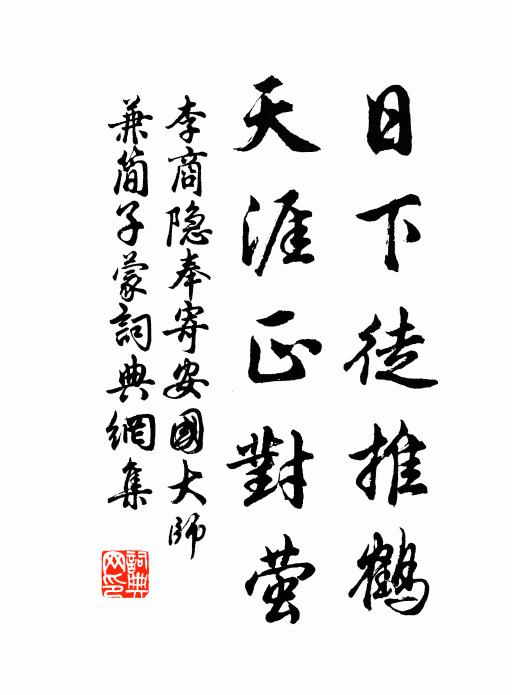 日下徒推鶴
天涯正對萤
李商隐奉寄安國大師
兼简子蒙詞典網集
詞典网印